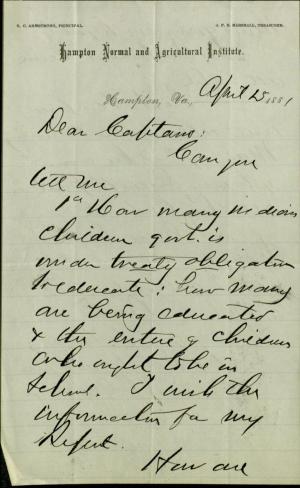 S. C. ARMSTRONG, PRINCIPAL. J. F. B. MARSHALL, TREASURER.
Hampton Normal and Agricultural Institute.
Hampton, Va., April 25 1881
Dear Capitano:
Can you
tell me
1st How many indian
children govt. is
under treaty obligation
to educate; how many
are being educated
& the entire of children
who ought to be in
school. I wish the
information for my
Report.
How are